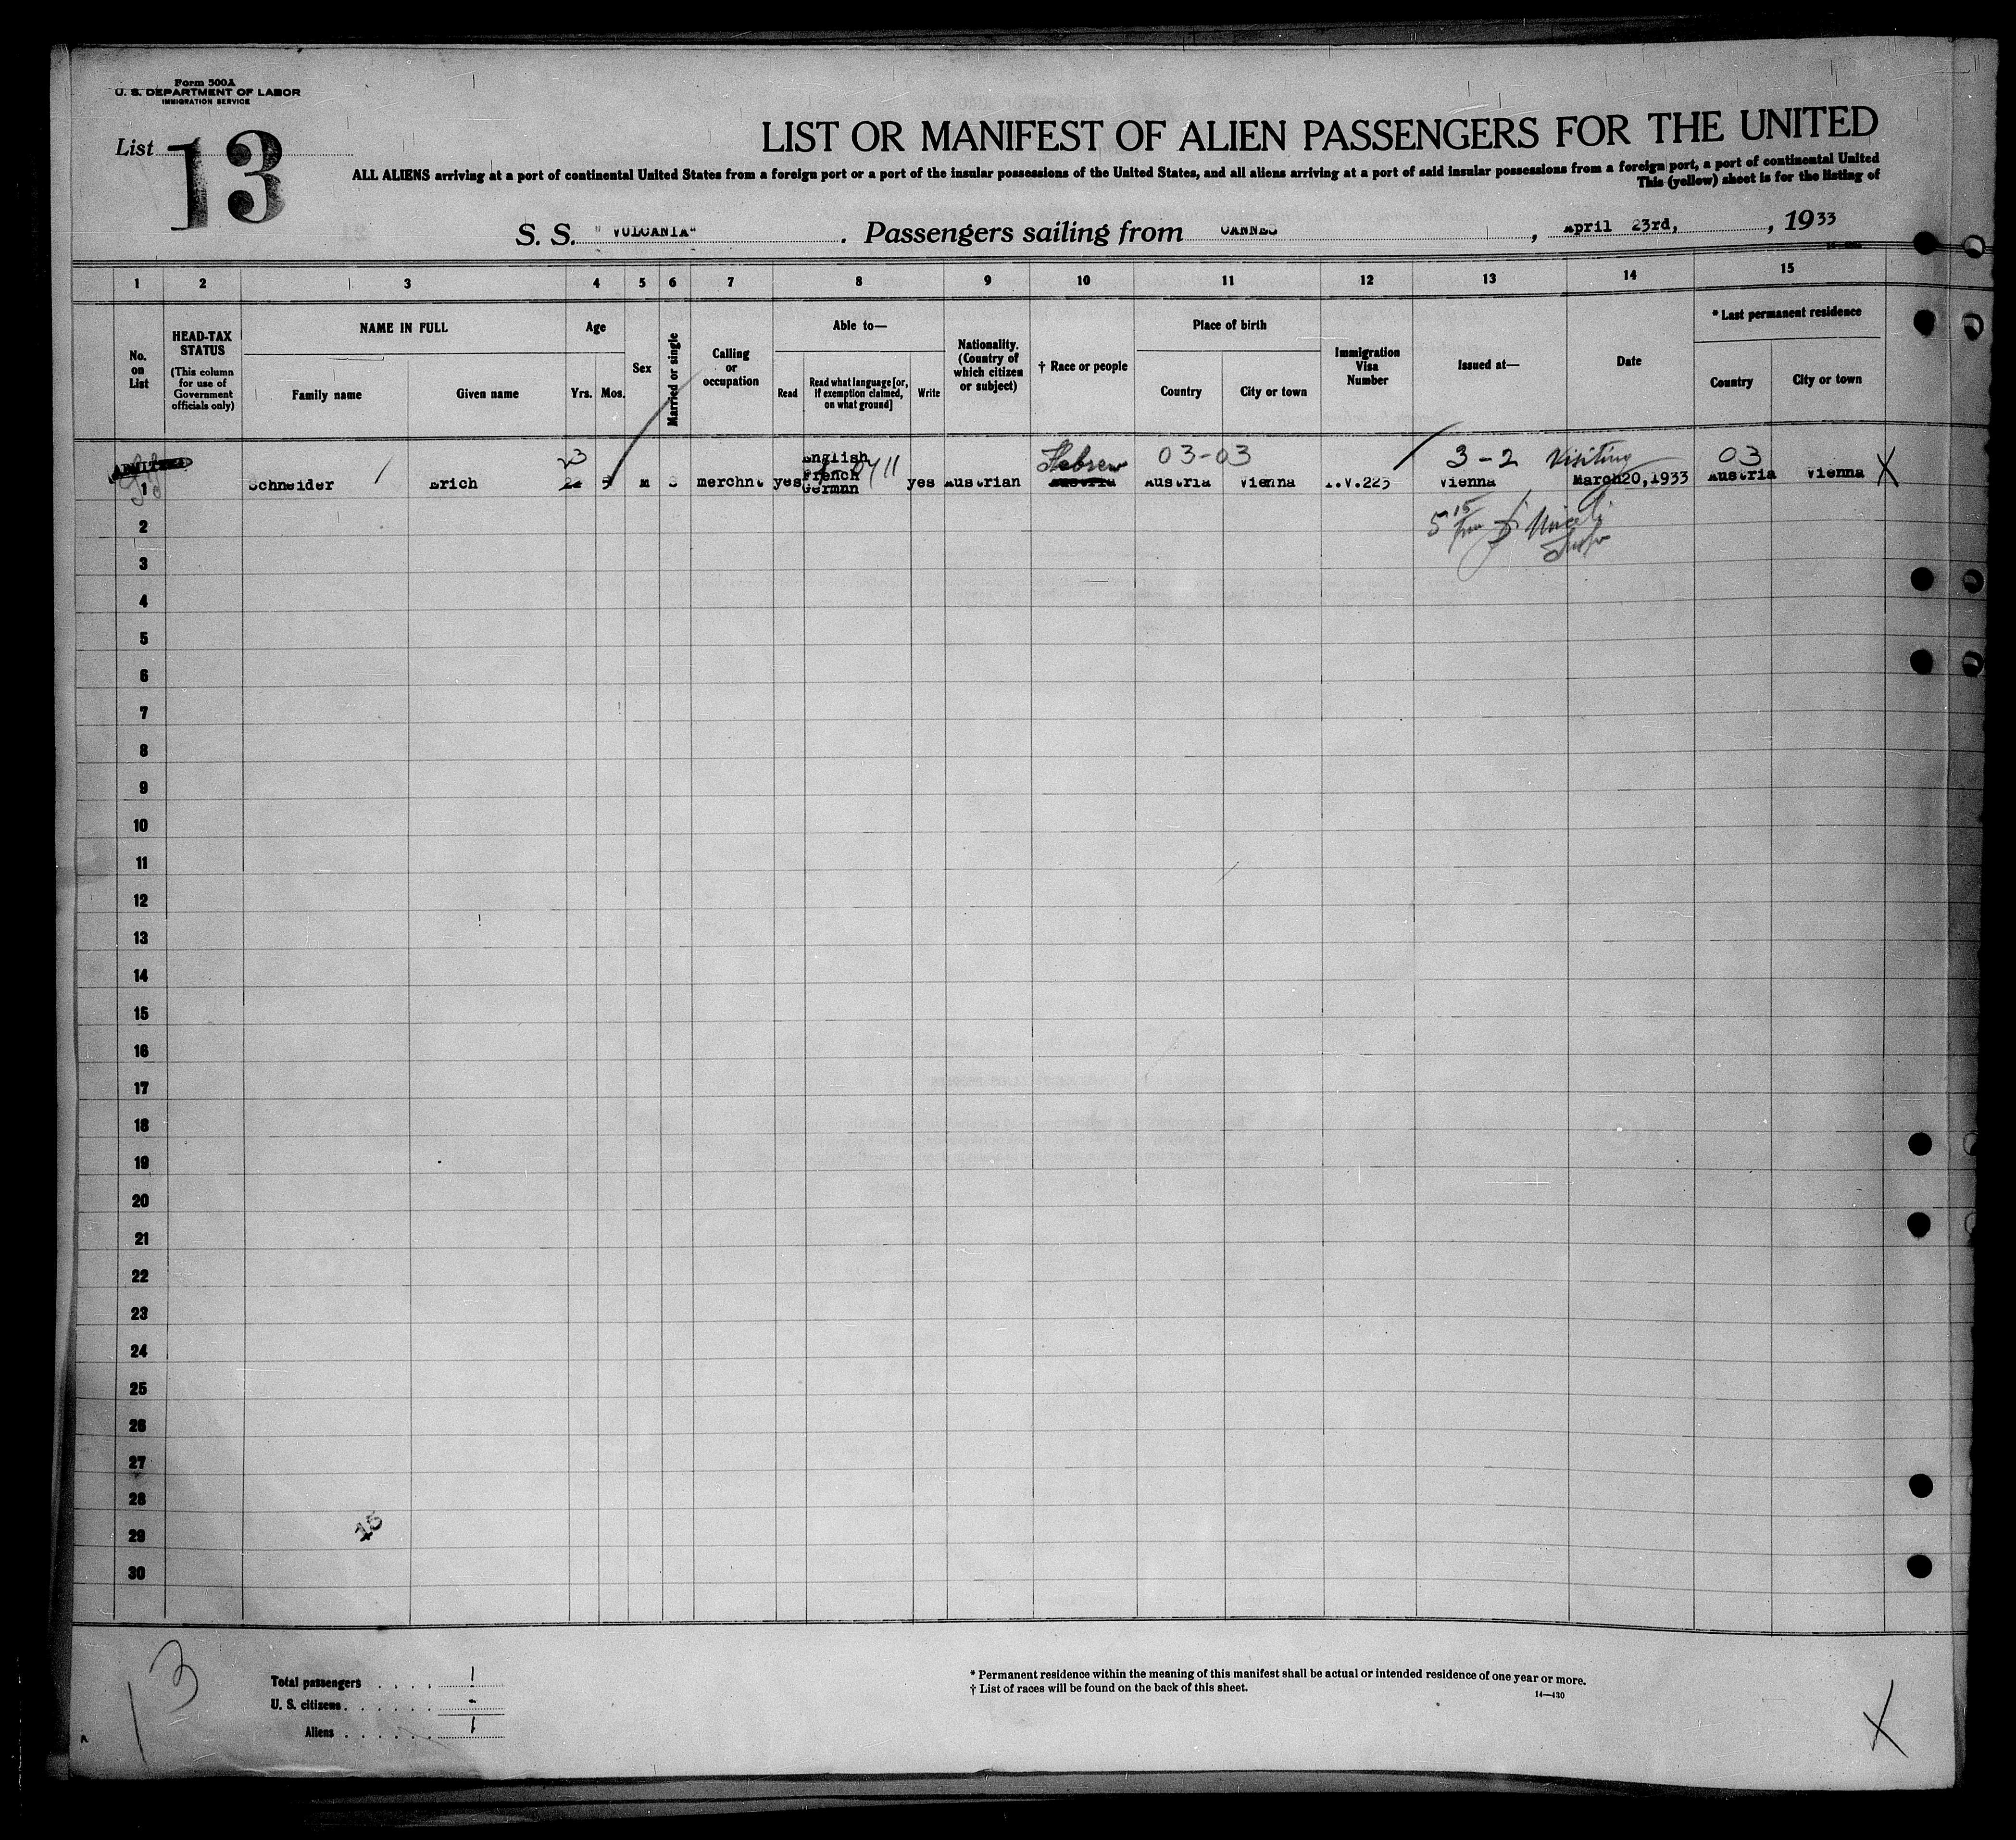 Form 500A
U. S. DEPARTMENT OF LABOR
IMMIGRATION SERVICE
List 13
LIST OR MANIFEST OF ALIEN PASSENGERS FOR THE UNITED
ALL ALIENS arriving at a port of continental United States from a foreign port or a port of the insular possessions of the United States, and all aliens arriving at a port of said insular possessions from a foreign port, a port of continental United
This (yellow) sheet is for the listing of
S. S. "VULCANIA". Passengers sailing from CANNES, April 23rd, , 1933
1 2 3 4 5 6 7 8 9 10 11 12 13 14 15
No. on List
HEAD-TAX STATUS
(This column for use of Government officials only)
NAME IN FULL
Family name Given name
Age
Yrs. Mos.
Sex
Married or single
Calling or occupation
Able to—
Read
Read what language [or, if exemption claimed, on what ground]
Write
Nationality. (Country of which citizen or subject)
† Race or people
Place of birth
Country City or town
Immigration Visa Number
Issued at—
Date
* Last permanent residence
Country City or town
ADMITTED
23 English Hebrew 03-03 3-2 Visiting 03
French
1 Schneider Erich 22 5 M S merchnt yes German yes Austrian Austria Austria Vienna I.V.223 Vienna March20,1933 Austria Vienna X
2
3
4
5
6
7
8
9
10
11
12
13
14
15
16
17
18
19
20
21
22
23
24
25
26
27
28
29
30
13
Total passengers . . . . 1
U. S. citizens . . . . . . -
Aliens . . . . . . 1
* Permanent residence within the meaning of this manifest shall be actual or intended residence of one year or more.
† List of races will be found on the back of this sheet.
14—430
X